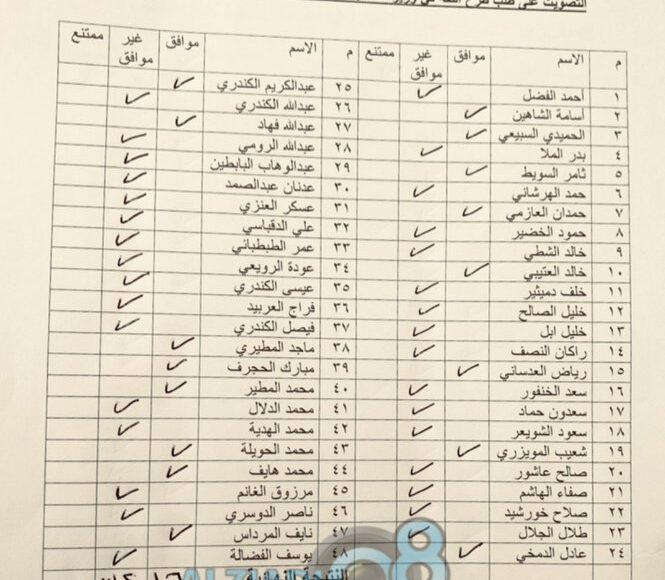 التصويت على طلب طرح الثقة في
م الاسم موافق غير موافق ممتنع
١ أحمد الفضل ✓
٢ أسامة الشاهين ✓
٣ الحميدي السبيعي ✓
٤ بدر الملا ✓
٥ ثامر السويط ✓
٦ حمد الهرشاني ✓
٧ حمدان العازمي ✓
٨ حمود الخضير ✓
٩ خالد الشطي ✓
١٠ خالد العتيبي ✓
١١ خلف دميثير ✓
١٢ خليل الصالح ✓
١٣ خليل ابل ✓
١٤ راكان النصف ✓
١٥ رياض العدساني ✓
١٦ سعد الخنفور ✓
١٧ سعدون حماد ✓
١٨ سعود الشويعر ✓
١٩ شعيب المويزري ✓
٢٠ صالح عاشور ✓
٢١ صفاء الهاشم ✓
٢٢ صلاح خورشيد ✓
٢٣ طلال الجلال ✓
٢٤ عادل الدمخي ✓
م الاسم موافق غير موافق ممتنع
٢٥ عبدالكريم الكندري ✓
٢٦ عبدالله الكندري ✓
٢٧ عبدالله فهاد ✓
٢٨ عبدالله الرومي ✓
٢٩ عبدالوهاب البابطين ✓
٣٠ عدنان عبدالصمد ✓
٣١ عسكر العنزي ✓
٣٢ علي الدقباسي ✓
٣٣ عمر الطبطبائي ✓
٣٤ عودة الرويعي ✓
٣٥ عيسى الكندري ✓
٣٦ فراج العربيد ✓
٣٧ فيصل الكندري ✓
٣٨ ماجد المطيري ✓
٣٩ مبارك الحجرف ✓
٤٠ محمد المطير ✓
٤١ محمد الدلال ✓
٤٢ محمد الهدية ✓
٤٣ محمد الحويلة ✓
٤٤ محمد هايف ✓
٤٥ مرزوق الغانم ✓
٤٦ ناصر الدوسري ✓
٤٧ نايف المرداس ✓
٤٨ يوسف الفضالة ✓
النتيجة النهائية ١٦